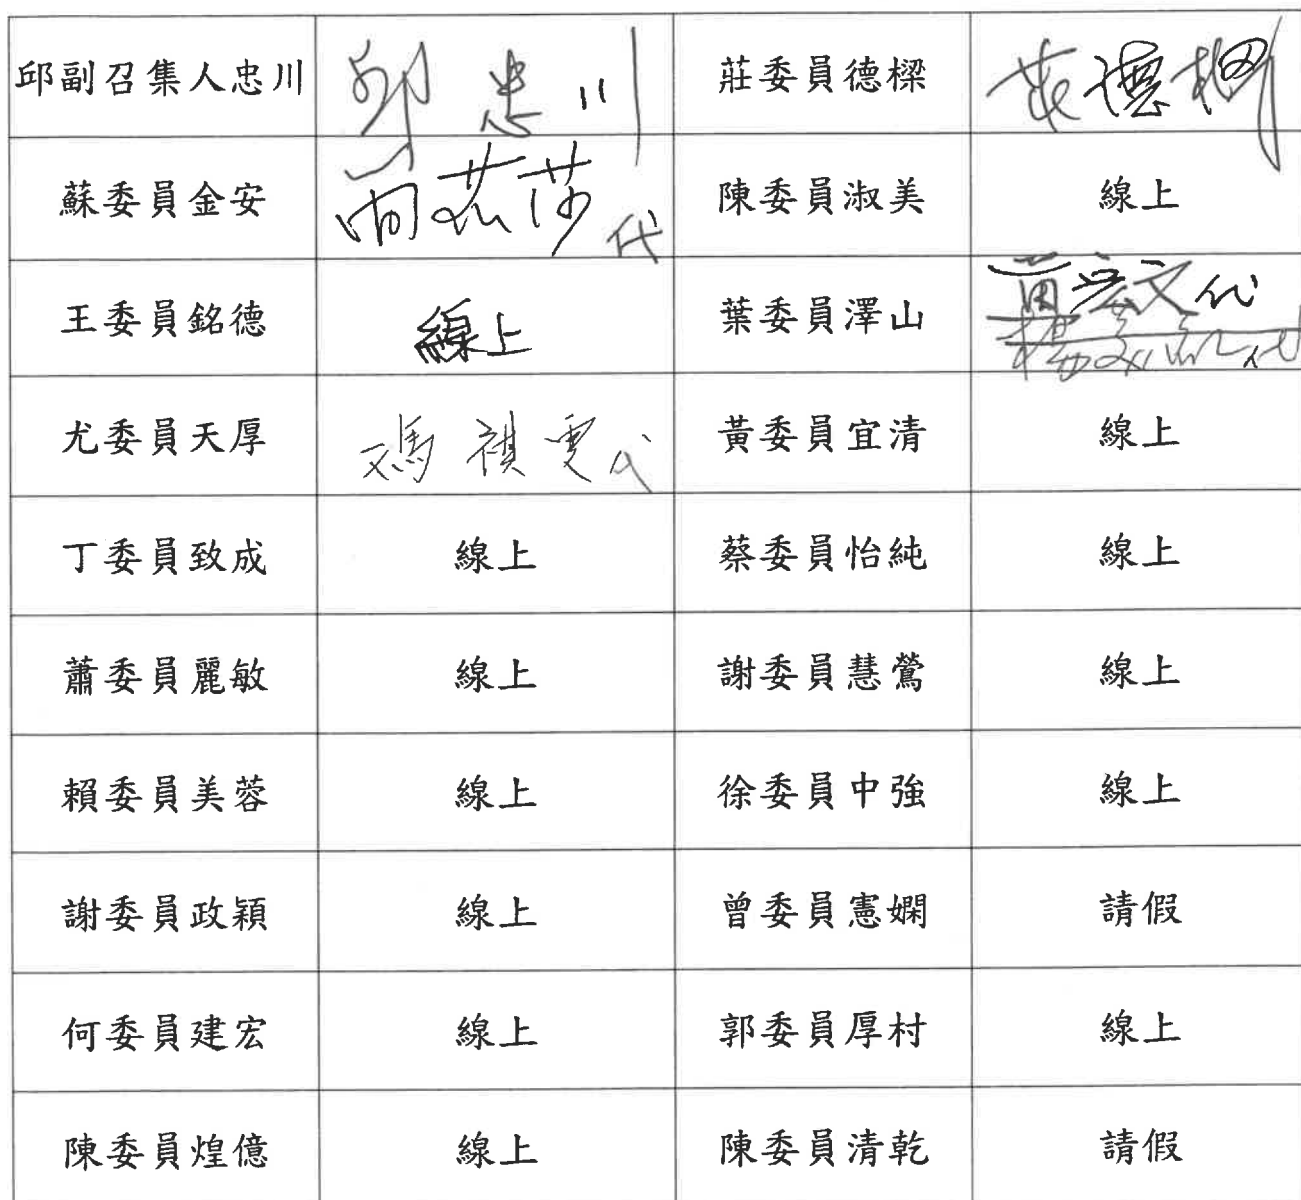 邱副召集人忠川 邱忠川 莊委員德樑 莊德樑
蘇委員金安 代 陳委員淑美 線上
王委員銘德 線上 葉委員澤山 黃宏文代
尤委員天厚 馮祺雯代 黃委員宜清 線上
丁委員致成 線上 蔡委員怡純 線上
蕭委員麗敏 線上 謝委員慧鶯 線上
賴委員美蓉 線上 徐委員中強 線上
謝委員政穎 線上 曾委員憲嫻 請假
何委員建宏 線上 郭委員厚村 線上
陳委員煌億 線上 陳委員清乾 請假